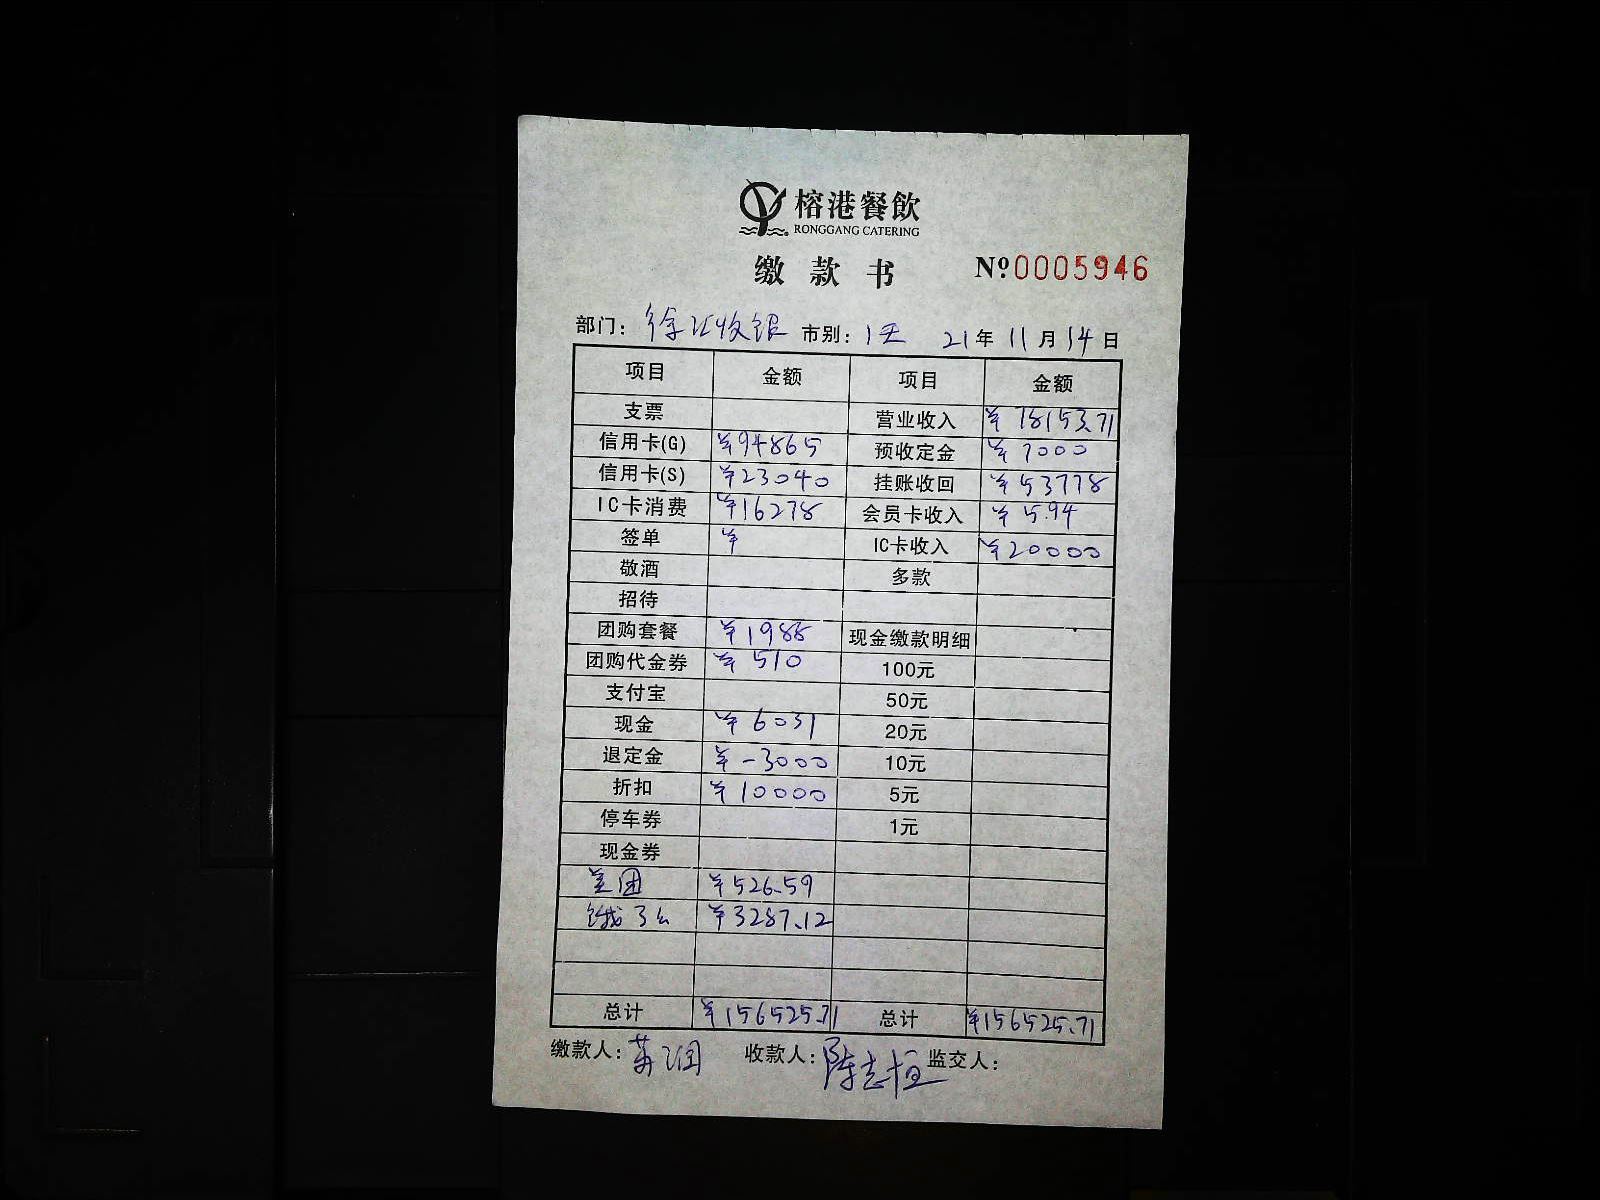 榕港餐飲
RONGGANG CATERING
缴款书 Nº0005946
部门: 徐汇收银 市别: 21年 11月 14日
项目 金额 项目 金额
支票 营业收入 ¥78153.71
信用卡(G) ¥94865 预收定金 ¥7000
信用卡(S) ¥23040 挂账收回 ¥53778
IC卡消费 ¥16278 会员卡收入 ¥594
签单 ¥ IC卡收入 ¥20000
敬酒 多款
招待
团购套餐 ¥1988 现金缴款明细
团购代金券 ¥510 100元
支付宝 50元
现金 ¥6031 20元
退定金 ¥-3000 10元
折扣 ¥10000 5元
停车券 1元
现金券
美团 ¥526.59
饿了么 ¥3287.12
总计 ¥156525.71 总计 ¥156525.71
缴款人: 收款人: 陈志恒 监交人: